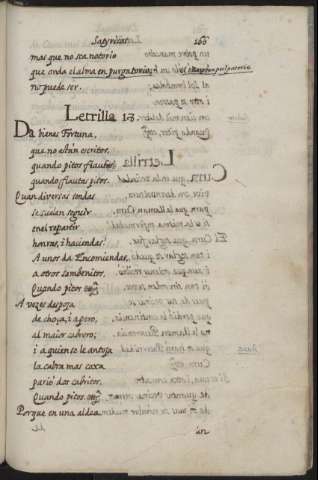 Satyricas. 166
mas que no sea notorio
que onda el alma en purgatorio,
no puede ser.
Letrilla 13.
Da bienes Fortuna,
que no están escritos,
quando pitos flautas
quando flautas pitos.
Quan diversas sendas
se suelen seguir
en el repartir
honras, i haciendas!
A unos da Encomiendas,
a otros sambenitos.
Quando pitos &c.
A veces despoja
de choça, i apero,
al maior cabrero;
i a quien se le antoja
la cabra mas coxa
pario dos cabritos.
Quando pitos &c.
Porque en una aldea